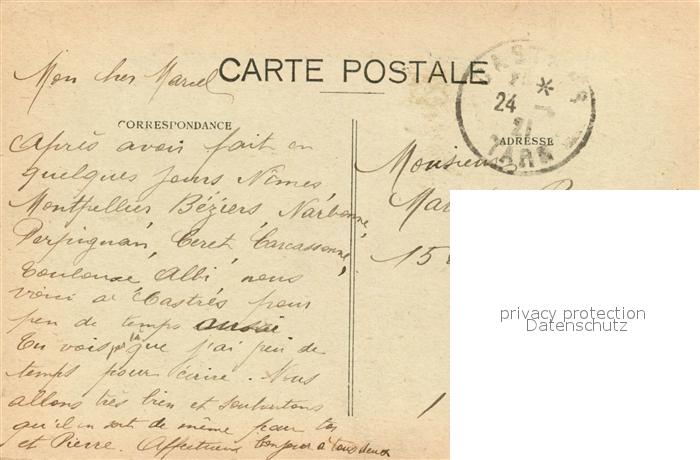 CARTE POSTALE
CASTRES
24 - 1
21
TARN
CORRESPONDANCE
ADRESSE
Mon cher Marcel
Après avoir fait en
quelques jours Nîmes,
Montpellier, Béziers, Narbonne,
Perpignan, Ceret, Carcassonne,
Toulouse, Albi, nous
voici à Castres pour
peu de temps aussi
Tu vois par là que j'ai peu de
temps pour écrire. Nous
allons très bien et souhaitons
qu'il en soit de même pour toi
et Pierre. Affectueux bonjour à tous deux
Monsieur
15
privacy protection
Datenschutz